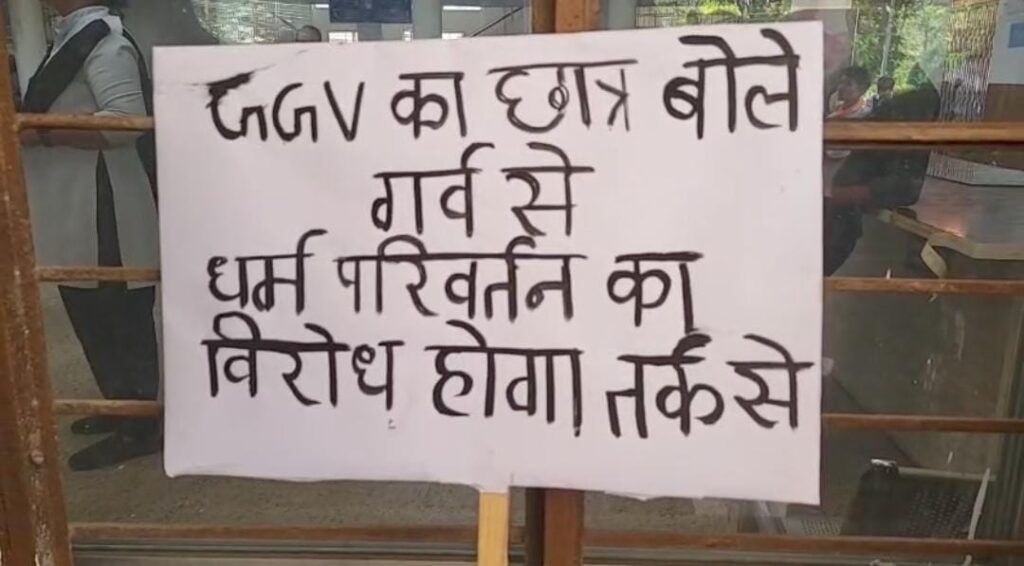 GGV का छात्र बोले
गर्व से
धर्म परिवर्तन का
विरोध होगा तर्क से